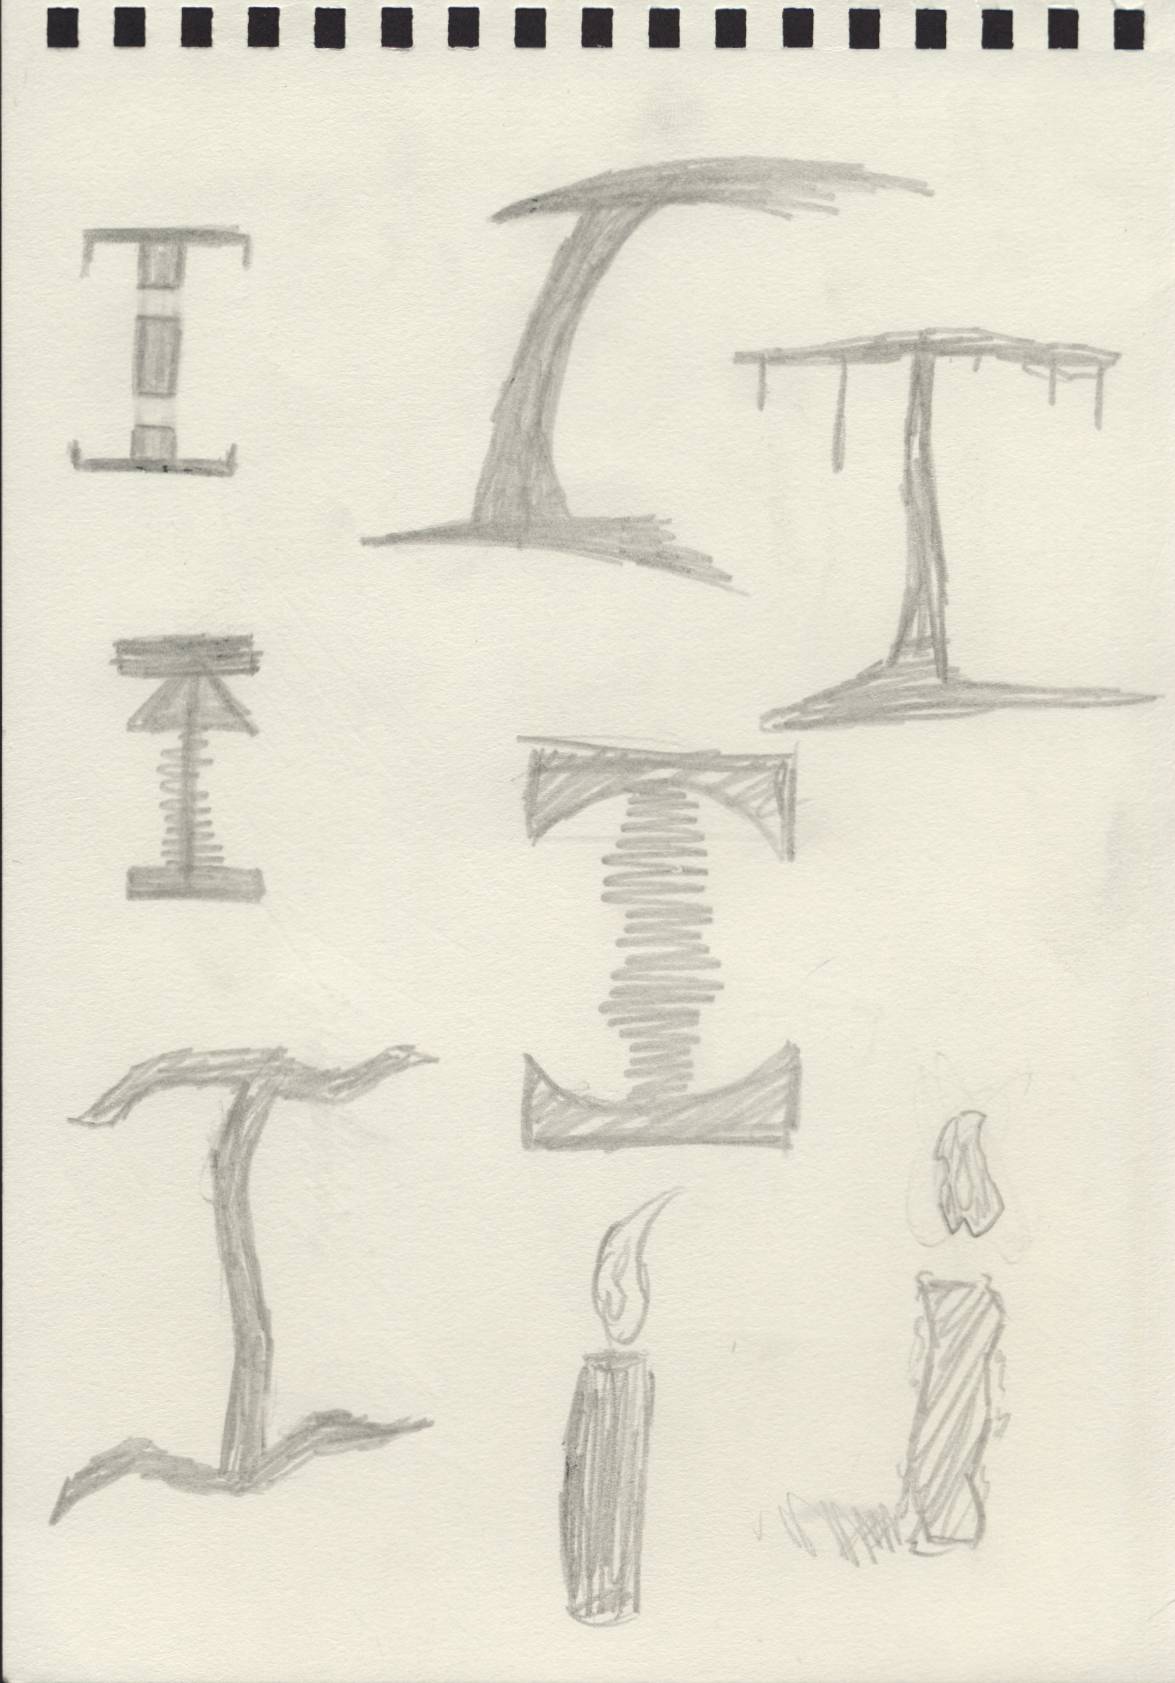 I I I
I I
I i i